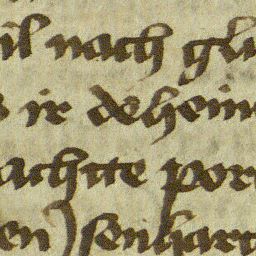 il nach glu
s ir deheim
achtte por
en senhart